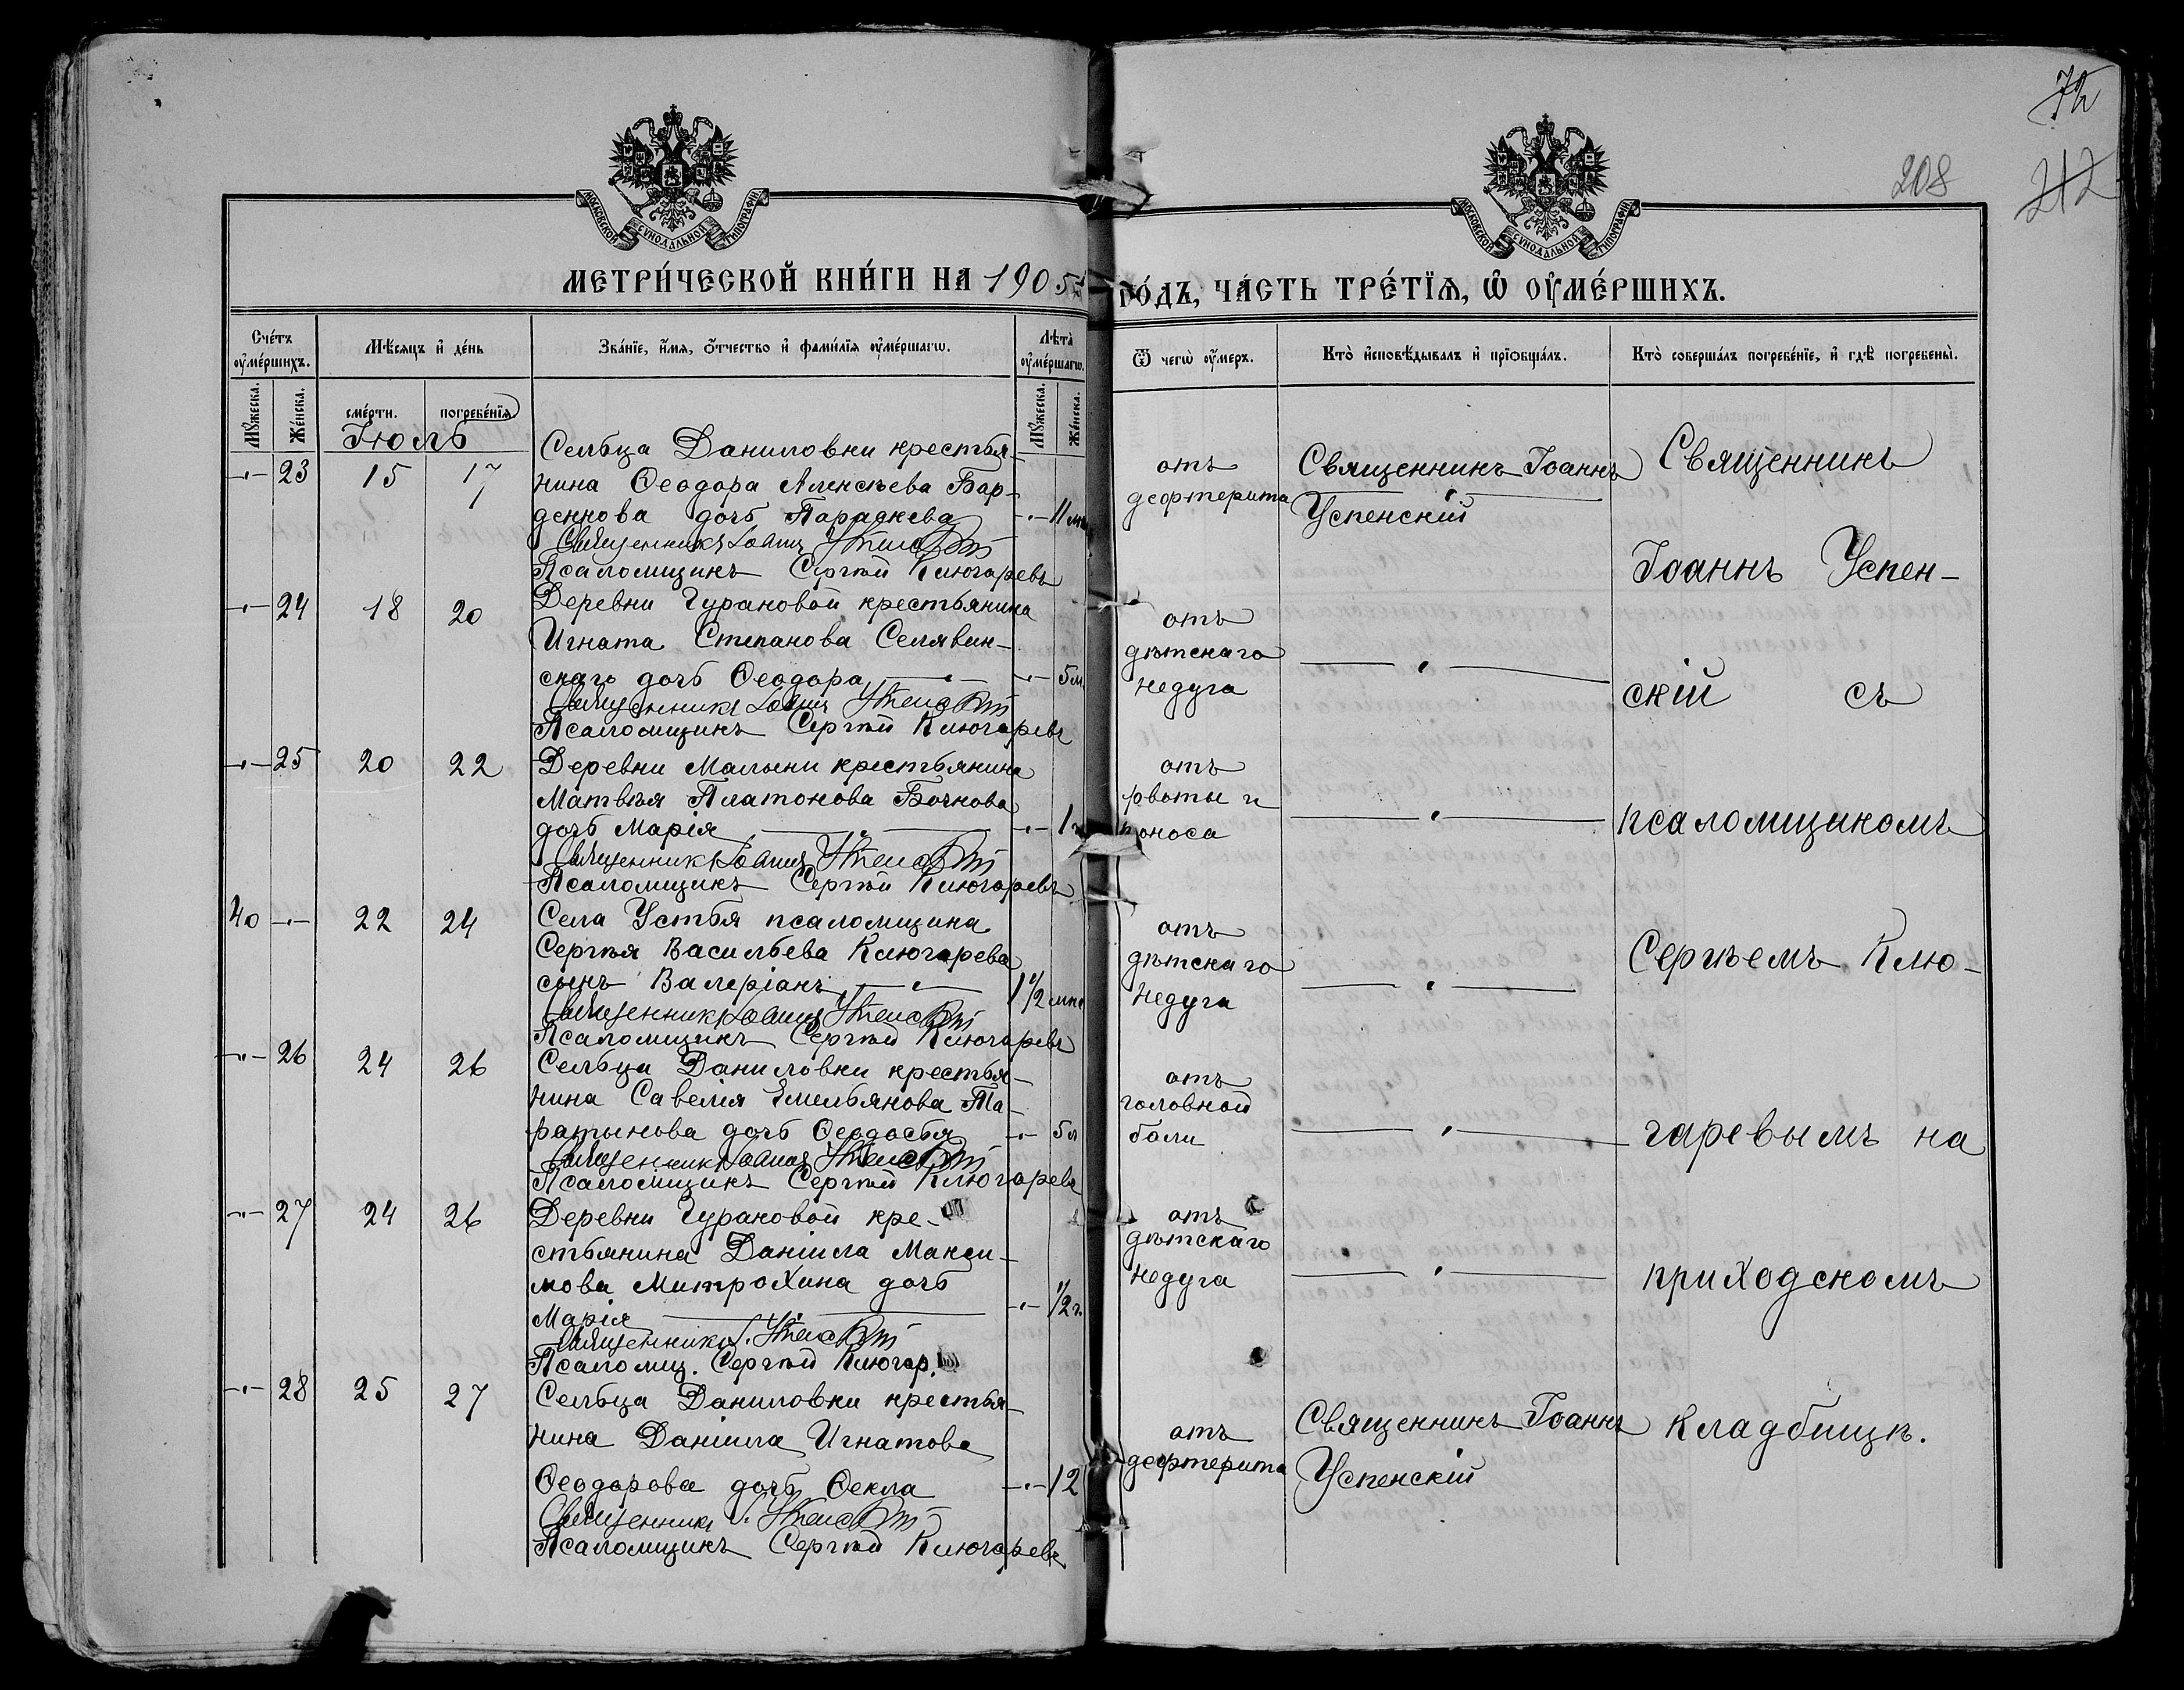 72
208
212
МОСКОВСКОЙ СѴНОДАЛЬНОЙ ТИПОГРАФІИ
МОСКОВСКОЙ СѴНОДАЛЬНОЙ ТИПОГРАФІИ
МЕТРИ́ЧЕСКОЙ КНИ́ГИ НА 1905
ГО́ДЪ, ЧА́СТЬ ТРЕ́ТЇѦ, Ѡ҆ ОУ҆МЕ́РШИХЪ.
Сче́тъ оу҆ме́ршихъ.
Мꙋжеска.
Же́нска.
Мѣ́сѧцъ и҆ де́нь
сме́рти.
погребе́нїѧ
Зва́нїе, и҆́мѧ, ѻ҆́тчество и҆ фами́лїѧ оу҆ме́ршагѡ.
Лѣ́та оу҆ме́ршагѡ.
Мꙋжеска.
Же́нска.
Ѿ чегѡ̀ оу҆́меръ.
Кто̀ и҆сповѣ́дывалъ и҆ прїѻбща́лъ.
Кто̀ соверша́лъ погребе́нїе, и҆ гдѣ̀ погребены̀.
Іюль
-"- 23 15 17
Сельца Даниловки крестья-
нина Ѳеодора Алексѣева Бар-
деннова дочь Параскева -"- 11 мѣ
Священникъ Іоаннъ Успенскій
Псаломщикъ Сергѣй Ключаревъ
отъ
дефтерита
Священникъ Іоаннъ
Успенскій
-"- 24 18 20
Деревни Гурановой крестьянина
Игната Степанова Селявин-
скаго дочь Ѳеодора -"- 5 м.
Священникъ Іоаннъ Успенскій
Псаломщикъ Сергѣй Ключаревъ
отъ
дѣтскаго
недуга
— " —
-"- 25 20 22
Деревни Малыни крестьянина
Матвѣя Платонова Бочкова
дочь Марія — " — -"- 1 г
Священникъ Іоаннъ Успенскій
Псаломщикъ Сергѣй Ключаревъ
отъ
рвоты и
поноса
— " —
40 -"- 22 24
Села Устья псаломщика
Сергѣя Васильева Ключарева
сынъ Валеріанъ — " — 1 1/2 мѣс
Священникъ Іоаннъ Успенскій
Псаломщикъ Сергѣй Ключаревъ
отъ
дѣтскаго
недуга
— " —
-"- 26 24 26
Сельца Даниловки крестья-
нина Савелія Емельянова Та-
ратынова дочь Ѳеодосья -"- 5 л
Священникъ Іоаннъ Успенскій
Псаломщикъ Сергѣй Ключаревъ
отъ
головной
боли
— " —
-"- 27 24 26
Деревни Гурановой кре-
стьянина Даніила Макси-
мова Митрохина дочь
Марія -"- 1/2 г.
Священникъ І. Успенскій
Псаломщ. Сергѣй Ключар.
отъ
дѣтскаго
недуга
— " —
-"- 28 25 27
Сельца Даниловки крестья-
нина Даніила Игнатова
Ѳеодорова дочь Ѳекла -"- 12
Священникъ І. Успенскій
Псаломщикъ Сергѣй Ключаревъ
отъ
дефтерита
Священникъ Іоаннъ
Успенскій
Священникъ
Іоаннъ Успен-
скій съ
псаломщикомъ
Сергѣемъ Клю-
чаревымъ на
приходскомъ
кладбищѣ.